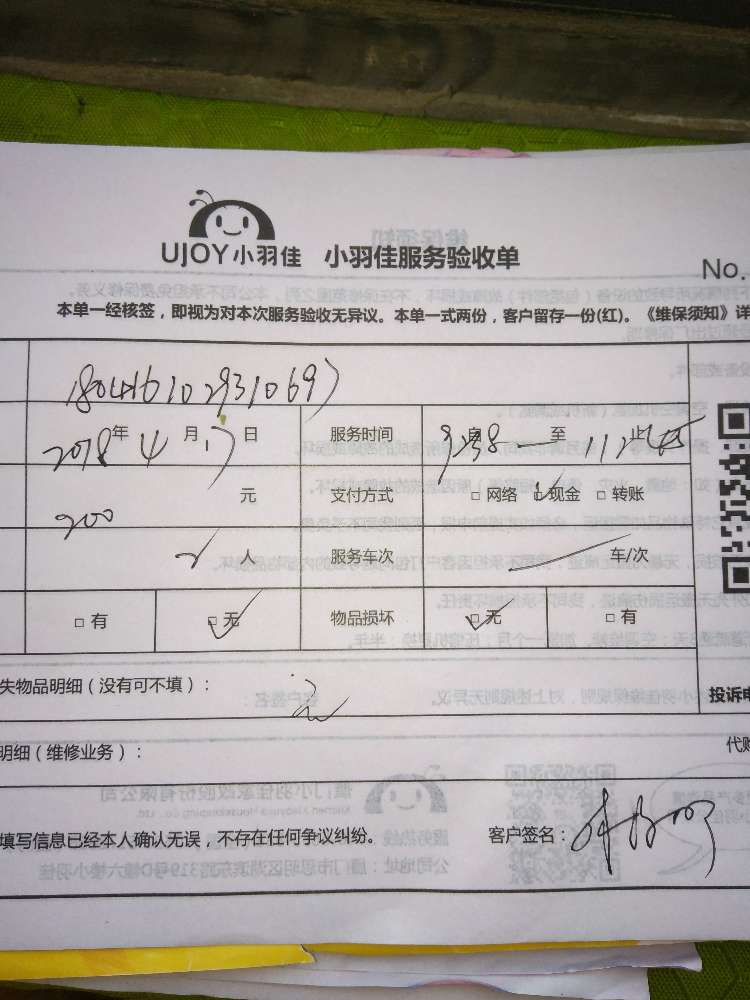 UJOY小羽佳 小羽佳服务验收单
No.
本单一经核签，即视为对本次服务验收无异议。本单一式两份，客户留存一份(红)。《维保须知》详
180416102931069
2018年4月17日 服务时间 自9:38至11:25止
200元 支付方式 □网络 ☑现金 □转账
2人 服务车次 车/次
□有 ☑无 物品损坏 ☑无 □有
失物品明细（没有可不填）：无
投诉电
明细（维修业务）：
代购
填写信息已经本人确认无误，不存在任何争议纠纷。 客户签名：